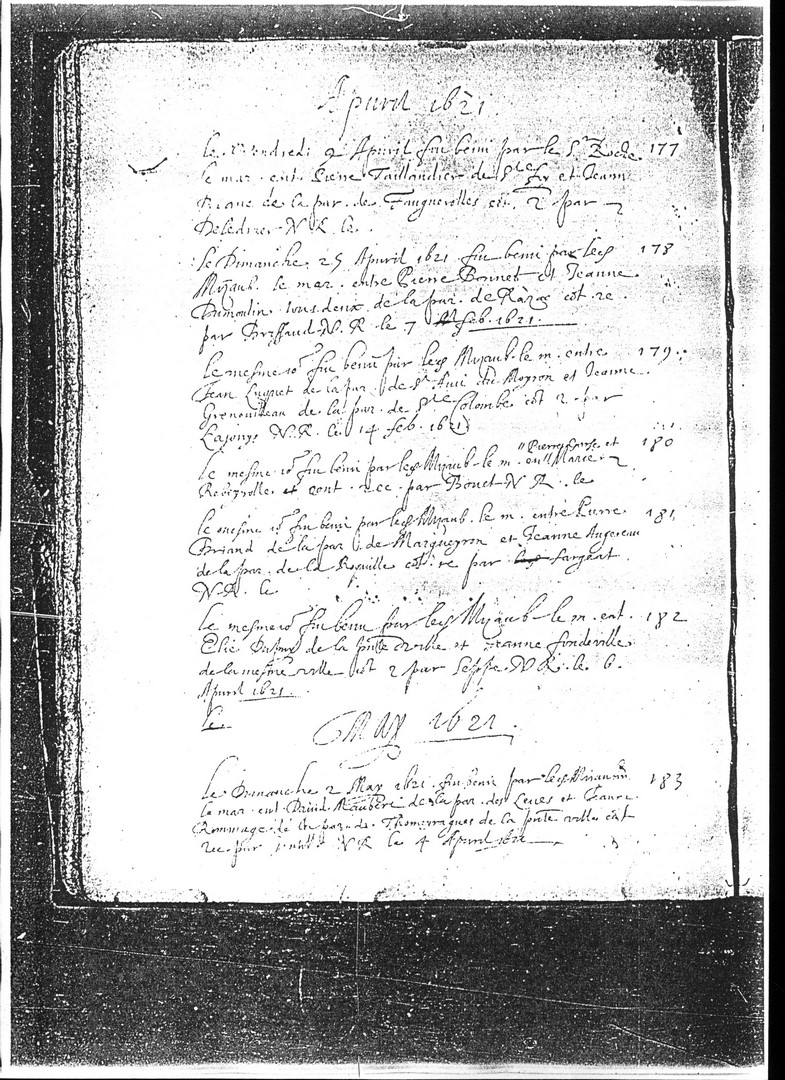 Apuril 1621
le Vendredi 9 Apuril fut beni par le Sr 177
le mar. ent. Pierre Taillandier de Ste Foy et Jeanne
de la par. de Fauguerolles 2 par
N. R. le.
le Dimanche 25 Apuril 1621 fut beni par led 178
Myzaub. le mar. entre Pierre Bonnet et Jeanne
Dumoulin tous deux de la par. de Razac cot. re.
par Briffaud N. R. le 7 feb. 1621.
le mesme io. fut beni par led Myzaub. le m. entre 179
Jean Luguet de la par. de St Avit du Moyron et Jeanne
Grenouilleau de la par. de Ste Colombe cot. 2. par
Lajonye N. R. le 14 feb. 1621
le mesme io. fut beni par led Myzaub. le m. en Pierre et 180
Marie
Rebeyrolle et cont. rec. par Bonet N. R. le
le mesme io. fut beni par led Myzaub. le m. entre Pierre 181
Briand de la par. de Margueyron et Jeanne Augereau
de la par. de la Rouille cot. re par Sargeat
N. R. le
le mesme io fut beni par led Myzaub. le m. ent. 182
Elie Dupuy de la pnte ville et Jeanne fondeville
de la mesme ville cot 2 par N. R. le 6.
Apuril 1621.
le
MAY 1621.
le Dimanche 2 May 1621. fut beni par led 183
le mar. ent. David Maubere de la par. des Leves et Jeanne
Rommage de la par. de Thomeyragues de la pnte ville cot
rec. par N. R. le 4 Apuril 1621